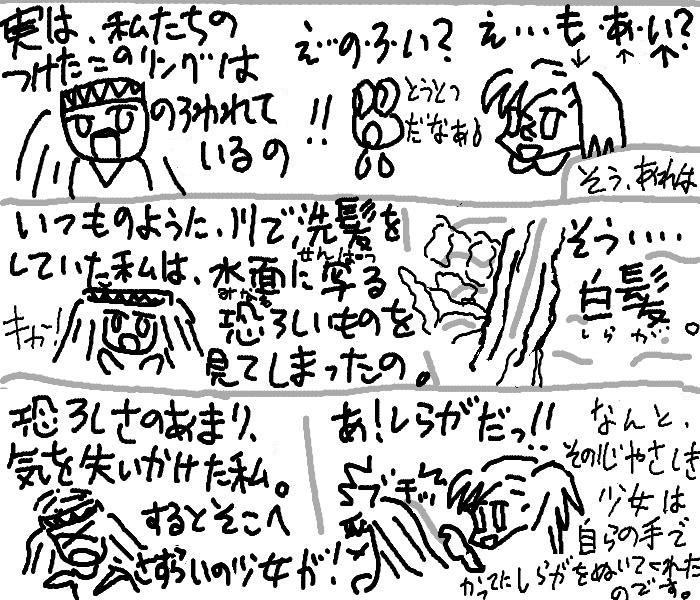 実は、私たちの
つけたこのリングは
のろわれて
いるの
!!
え…の・ろ・い?
とうとつ
だなぁ♪
え…も・あ・い?
↓ ↑ ↑
そう、あれは
いつものように、川で、洗髪を
せんぱつ
していた私は、水面に写る
みなも
恐ろしいものを
見てしまったの。
キャー!
そう・・・・
白髪。
しらが
恐ろしさのあまり、
気を失いかけた私。
するとそこへ
さすらいの少女が!
あ!しらがだっ!!
ブチッ
なんと、
その心やさしき
少女は
自らの手で
かってにしらがをぬいてくれた
のです。